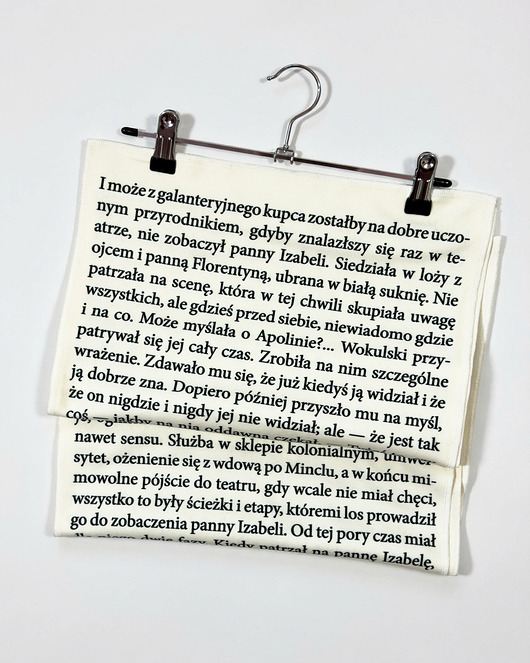 I może z galanteryjnego kupca zostałby na dobre uczo-
nym przyrodnikiem, gdyby znalazłszy się raz w te-
atrze, nie zobaczył panny Izabeli. Siedziała w loży z
ojcem i panną Florentyną, ubrana w białą suknię. Nie
patrzała na scenę, która w tej chwili skupiała uwagę
wszystkich, ale gdzieś przed siebie, niewiadomo gdzie
i na co. Może myślała o Apolinie?... Wokulski przy-
patrywał się jej cały czas. Zrobiła na nim szczególne
wrażenie. Zdawało mu się, że już kiedyś ją widział i że
ją dobrze zna. Dopiero później przyszło mu na myśl,
że on nigdzie i nigdy jej nie widział; ale — że jest tak
coś, jakby na nią oddawna czekał.
nawet sensu. Służba w sklepie kolonialnym, uniwer-
sytet, ożenienie się z wdową po Minclu, a w końcu mi-
mowolne pójście do teatru, gdy wcale nie miał chęci,
wszystko to były ścieżki i etapy, któremi los prowadził
go do zobaczenia panny Izabeli. Od tej pory czas miał
dla niego dwie fazy. Kiedy patrzał na pannę Izabelę,